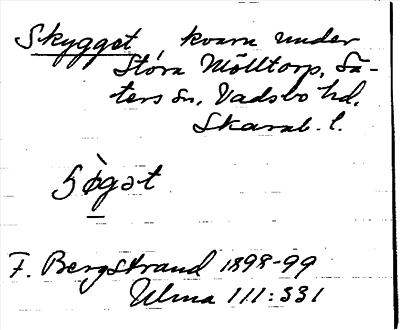 Skygget, kvarn under
Stora Mölltorp, Sä-
ters sn, Vadsbo hd.
Skarab. l.
F. Bergstrand 1898-99
Ulma 111:331